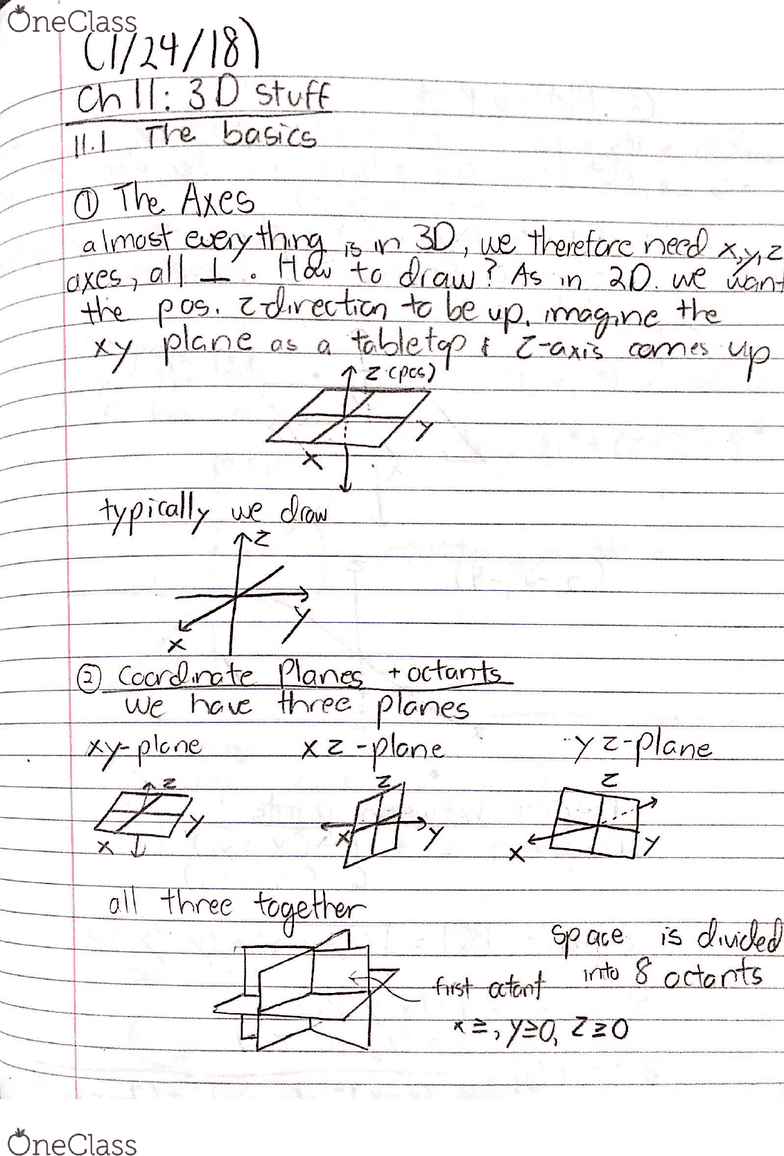 OneClass
(1/24/18)
Ch 11: 3D stuff
11.1 The basics
① The Axes
almost everything is in 3D, we therefore need x,y,z
axes, all ⊥. How to draw? As in 2D. we want
the pos. z direction to be up, imagine the
xy plane as a tabletop & z-axis comes up
z (pos)
y
x
typically we draw
z
y
x
② Coordinate Planes + octants
we have three planes
xy-plane xz-plane yz-plane
z z z
x y x y x y
all three together
space is divided
into 8 octants
first octant
x≥, y≥0, z≥0
OneClass